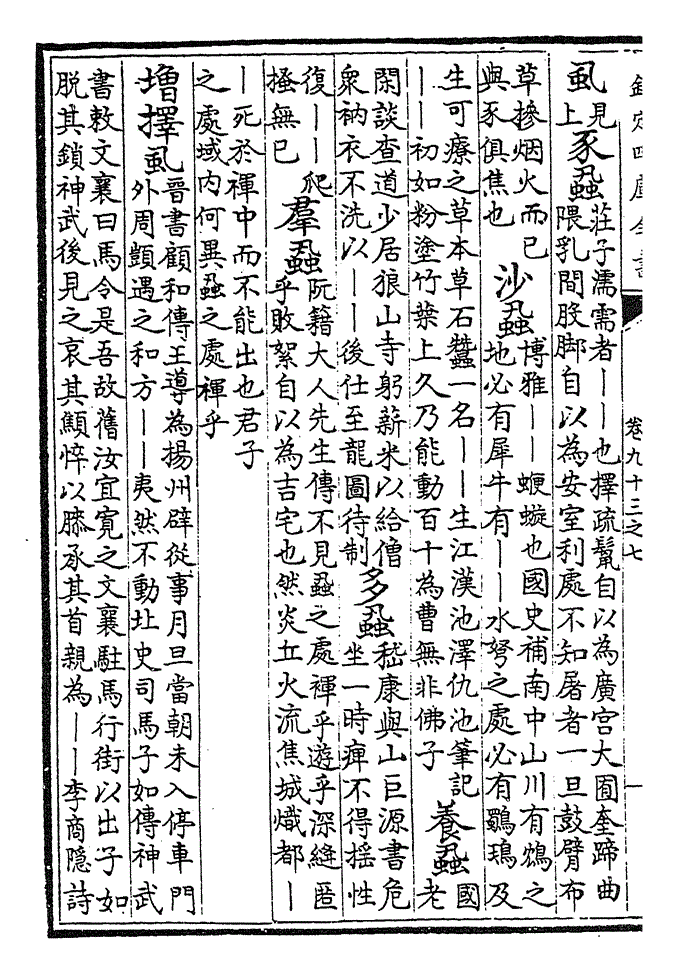 欽定四庫全書
卷九十三之七
一
虱
見
上
豕蝨
莊子濡需者――也擇疏鬣自以為廣宮大囿奎蹄曲
隈乳間股脚自以為安室利處不知屠者一旦鼓臂布
草摻烟火而已
與豕俱焦也
沙蝨
博雅――蝘蜁也國史補南中山川有鴆之
地必有犀牛有――水弩之處必有鸀鳿及
生可療之草本草石蠶一名――生江漢池澤仇池筆記
――初如粉塗竹葉上久乃能動百十為曹無非佛子
養蝨
國
老
閑談查道少居狼山寺躬薪米以給僧
衆衲衣不洗以――後仕至龍圖待制
多蝨
嵇康與山巨源書危
坐一時痺不得搖性
復――爬
搔無已
羣蝨
阮籍大人先生傳不見蝨之處褌乎遊乎深縫匿
乎敗絮自以為吉宅也然炎丘火流焦城熾都―
―死於褌中而不能出也君子
之處域内何異蝨之處褌乎
増擇虱
晉書顧和傳王導為揚州辟從事月旦當朝未入停車門
外周顗遇之和方――夷然不動北史司馬子如傳神武
書敕文襄曰馬令是吾故舊汝宜寬之文襄駐馬行街以出子如
脱其鎖神武後見之哀其顦悴以膝承其首親為――李商隱詩